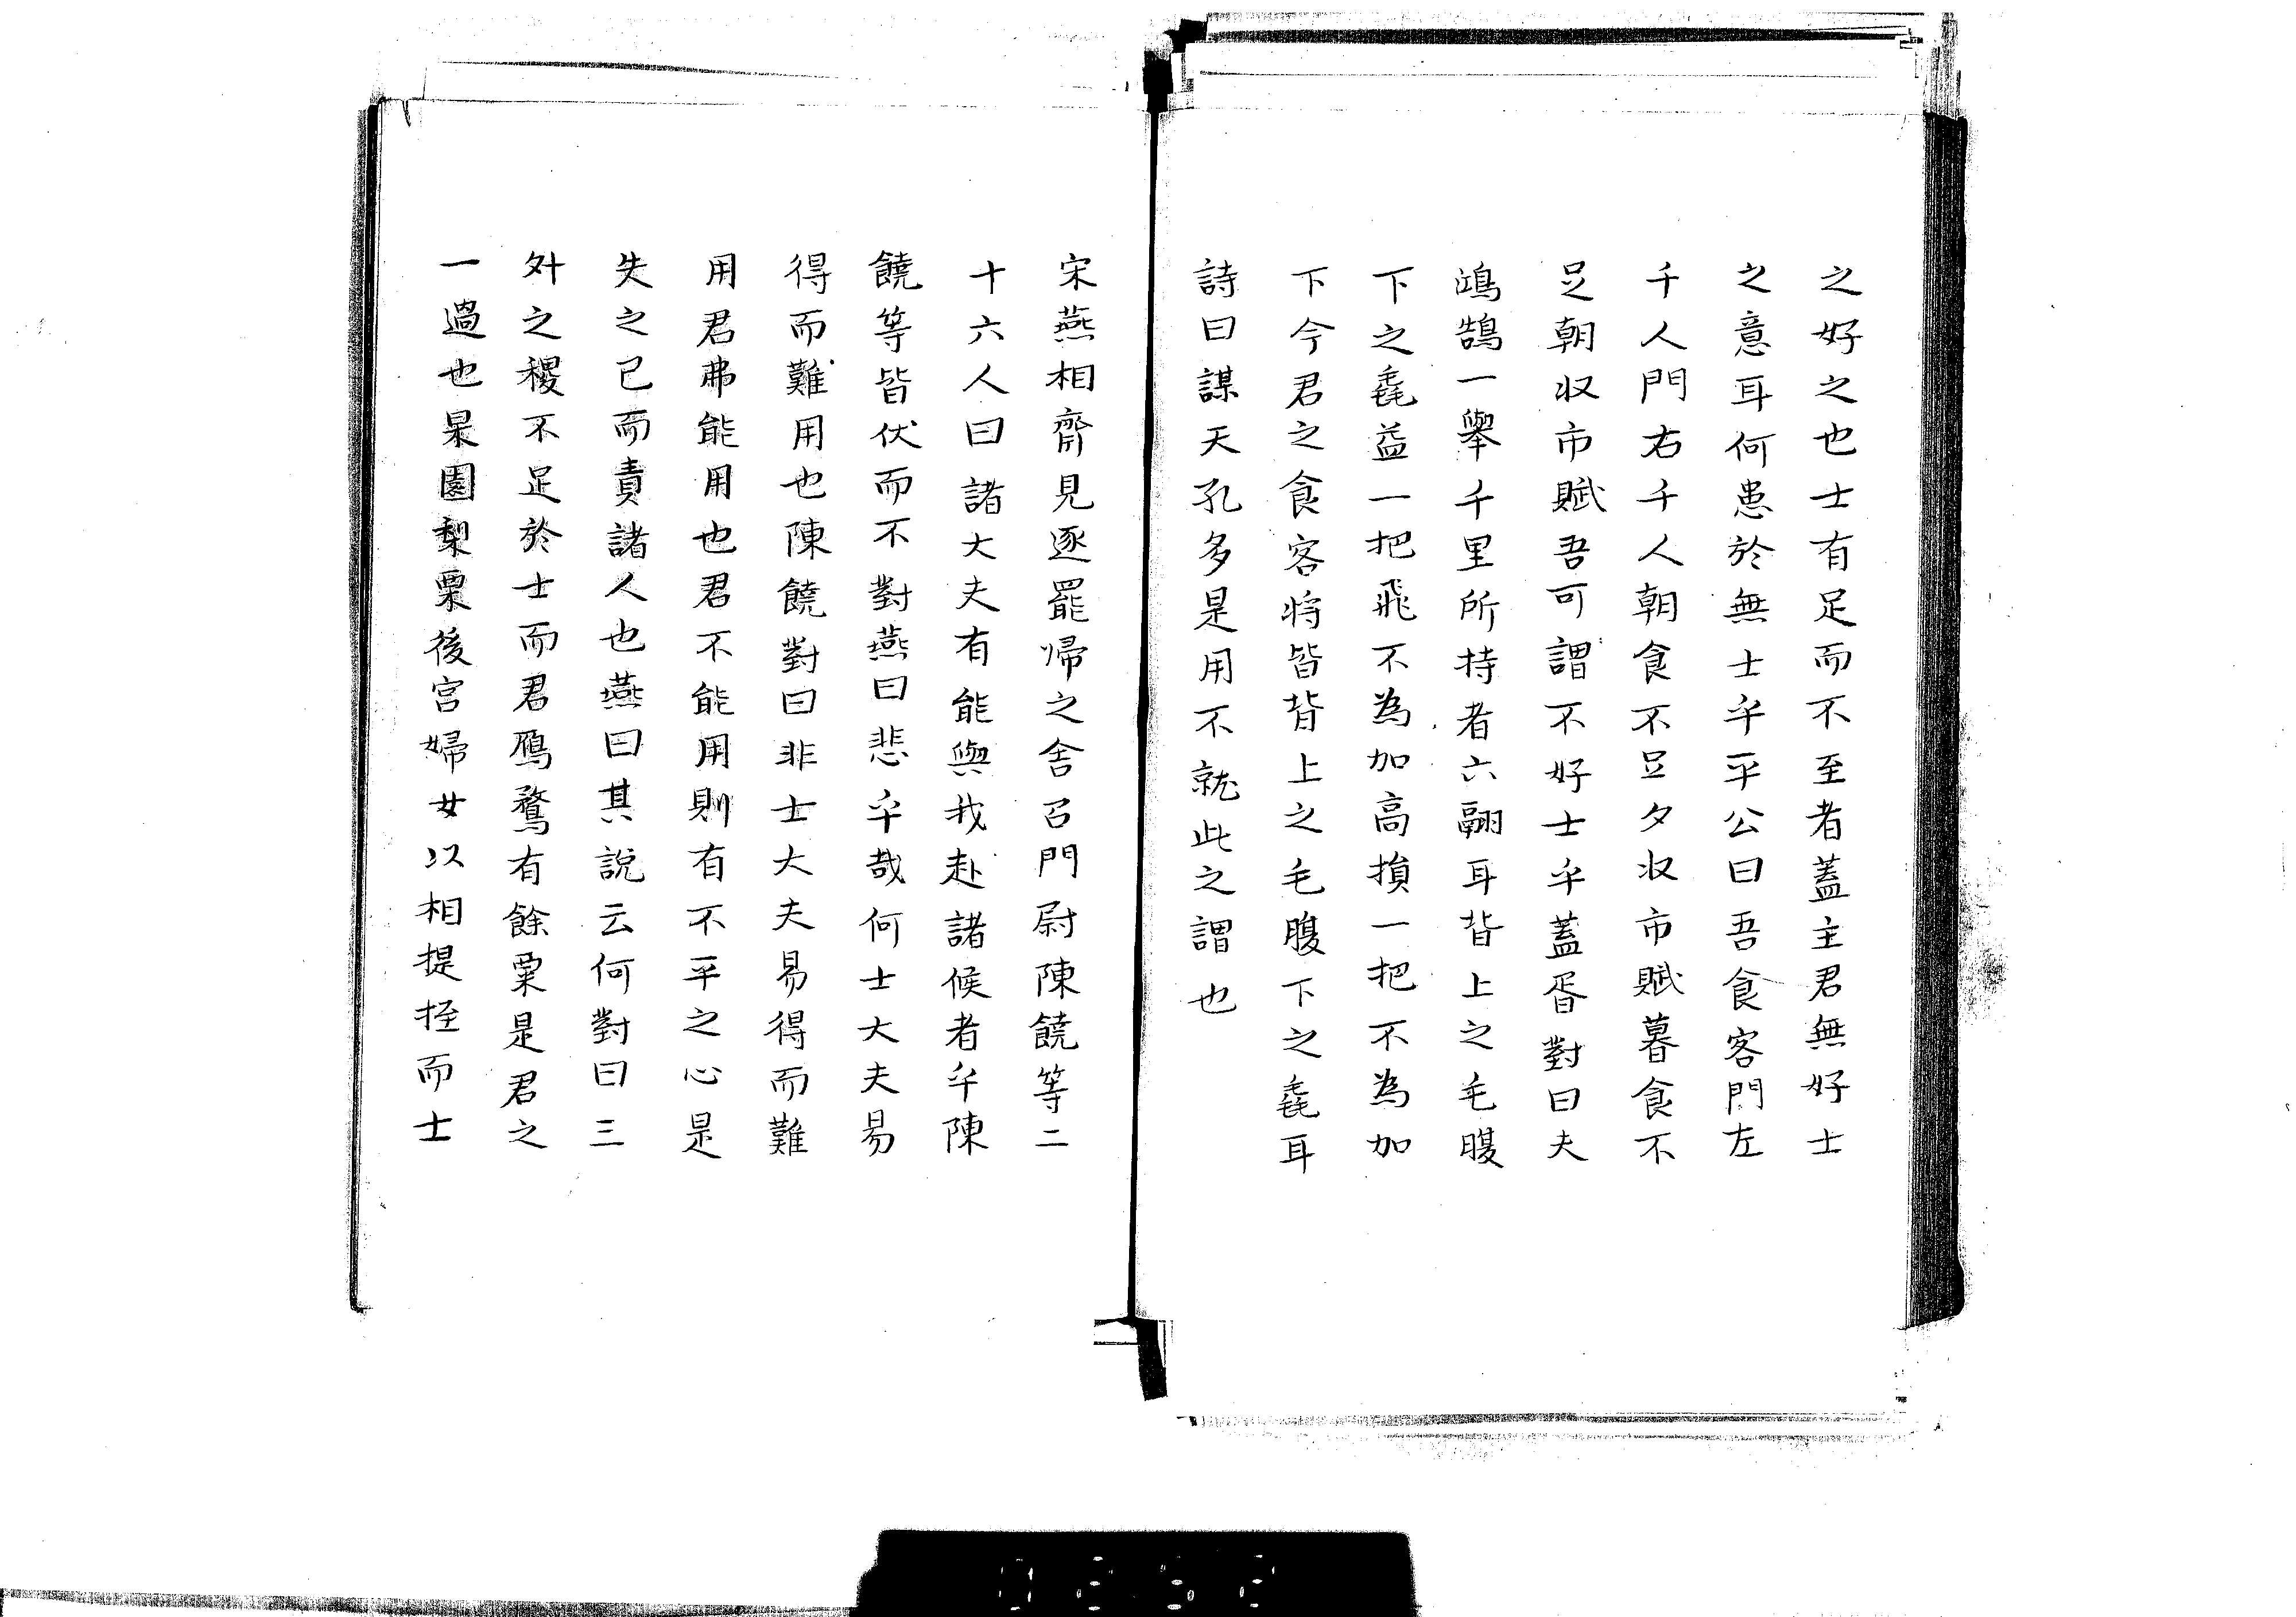 之好之也士有足而不至者蓋主君無好士
之意耳何患於無士乎平公曰吾食客門左
千人門右千人朝食不足夕収市賦暮食不
足朝収市賦吾可謂不好士乎蓋胥對曰夫
鴻鵠一舉千里所持者六翮耳背上之毛腹
下之毳益一把飛不為加高損一把不為加
下今君之食客將皆背上之毛腹下之毳耳
詩曰謀夫孔多是用不就此之謂也
宋燕相齊見逐罷歸之舍召門尉陳饒等二
十六人曰諸大夫有能與我赴諸侯者乎陳
饒等皆伏而不對燕曰悲乎哉何士大夫易
得而難用也陳饒對曰非士大夫易得而難
用君弗能用也君不能用則有不平之心是
失之己而責諸人也燕曰其說云何對曰三
外之稷不足於士而君鴈鶩有餘粟是君之
一過也果園梨栗後宮婦女以相提挃而士